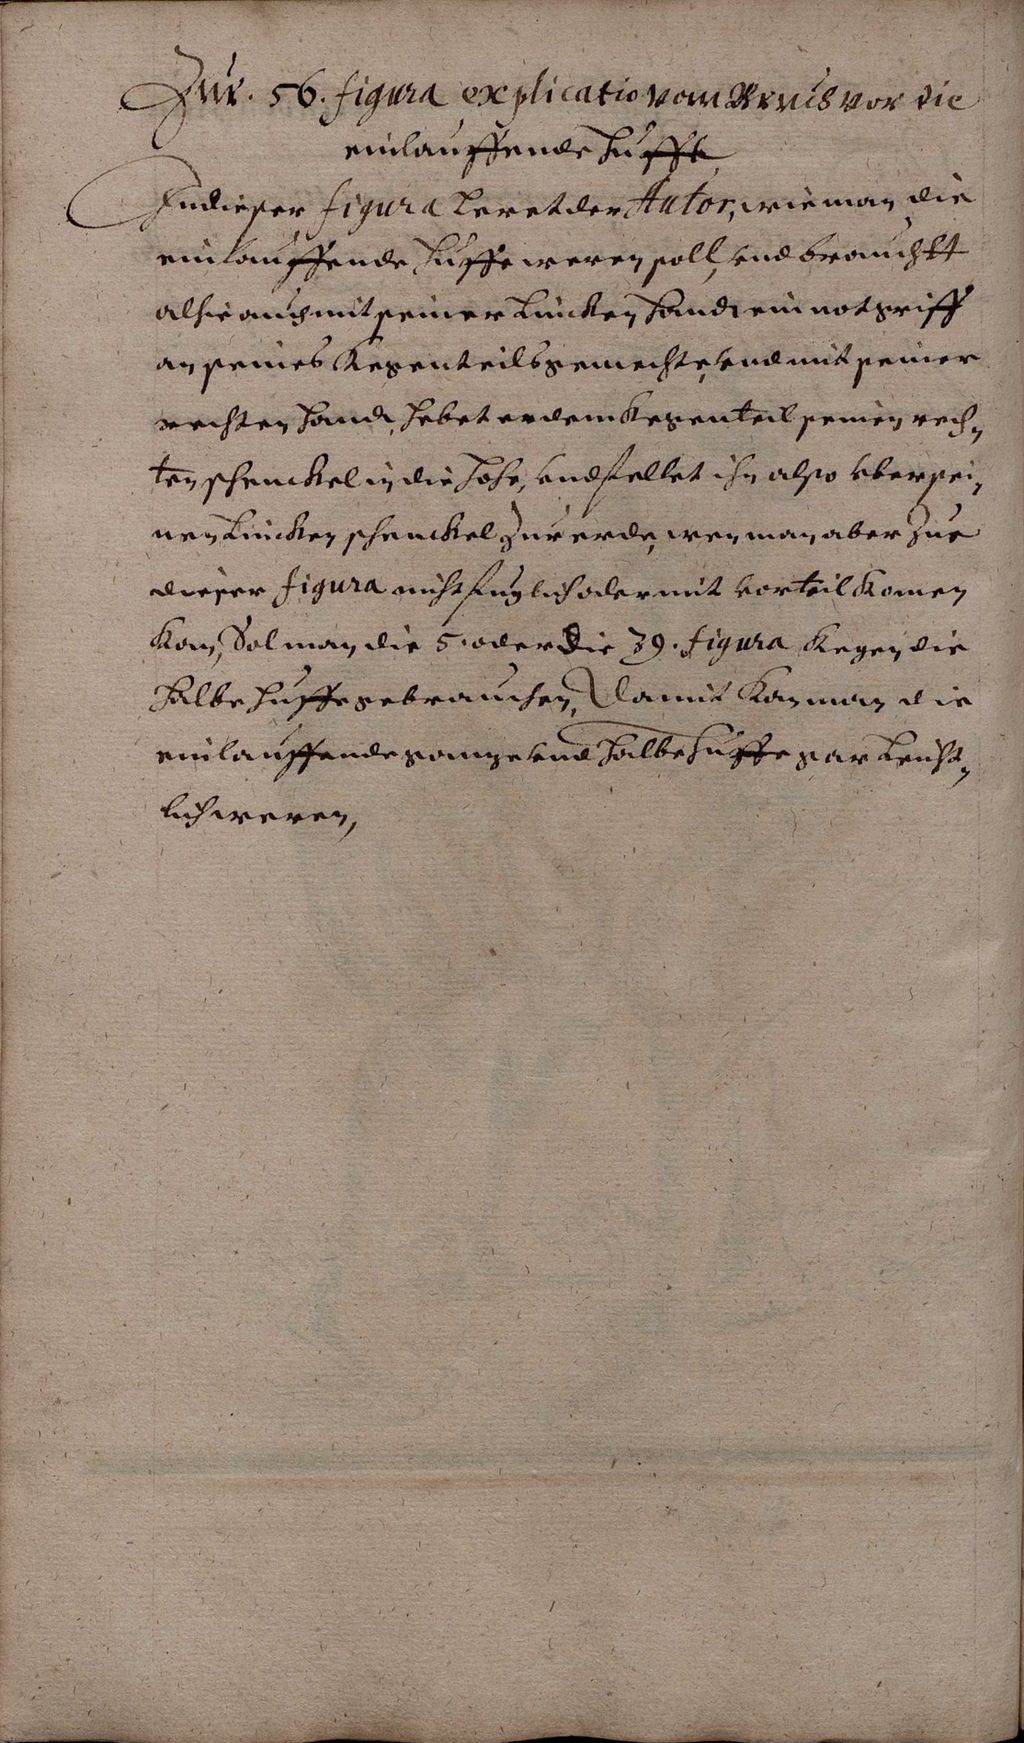 Zur. 56. figura explicatio vom Bruch vor die
einlauffende Huffe
In dieser figura Leret der Autor, wie man die
einlauffende huffe weren soll, vnd braucht
alhie auch mit seiner Lincken Handt ein notgriff
an seines Kegenteils gemechte, vnd mit seiner
rechten Handt, hebet er dem Kegenteil seinen rech-
ten schenckel in die Hohe, vnd fellet ihn also vber sei-
nen Lincken schenckel zur erde, wen man aber zue
dieser figura nicht fuglich oder mit vorteil Komen
Kan, Sol man die 5. oder die 39. figura Kegen die
Halbe Huffe gebrauchen, Damit Kan man die
einlauffende gantze vnd Halbe Huffe gar Leicht-
lich weren,